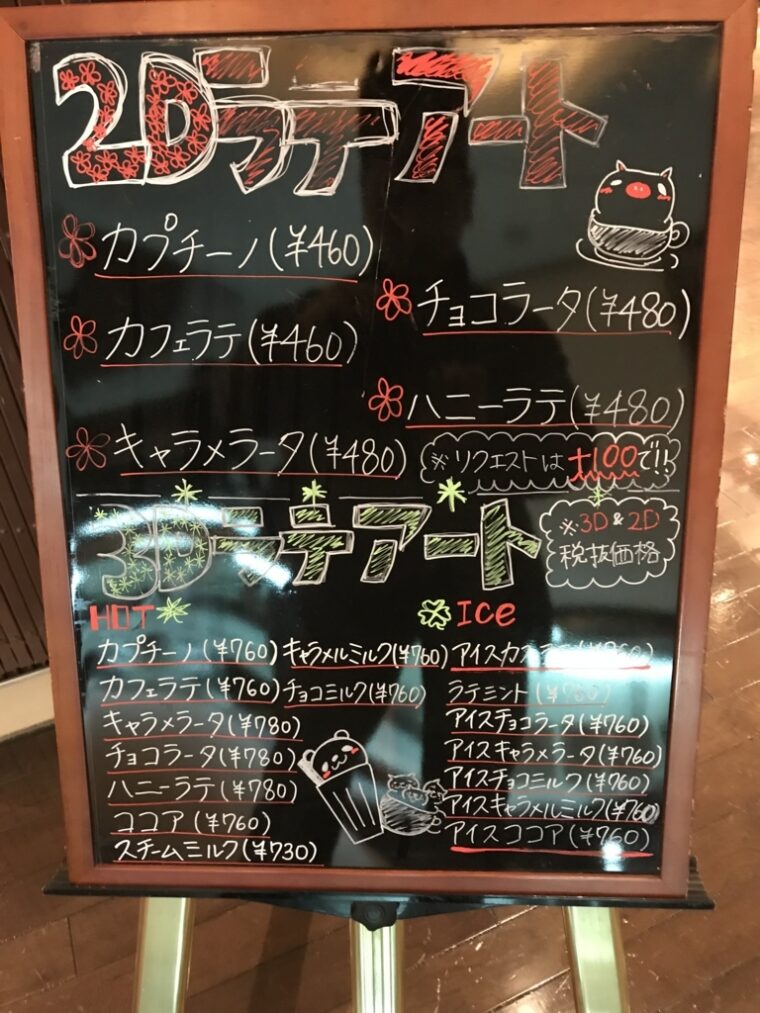 2Dラテアート
カプチーノ(¥460)
カフェラテ(¥460)
キャラメラータ(¥480)
チョコラータ(¥480)
ハニーラテ(¥480)
※リクエストは+100で!!
3Dラテアート
※3D&2D
税抜価格
HOT
カプチーノ(¥760)
カフェラテ(¥760)
キャラメラータ(¥780)
チョコラータ(¥780)
ハニーラテ(¥780)
ココア(¥760)
スチームミルク(¥730)
キャラメルミルク(¥760)
チョコミルク(¥760)
Ice
アイスカフェラテ
ラテミント(¥760)
アイスチョコラータ(¥760)
アイスキャラメラータ(¥760)
アイスチョコミルク(¥760)
アイスキャラメルミルク(¥760)
アイスココア(¥760)